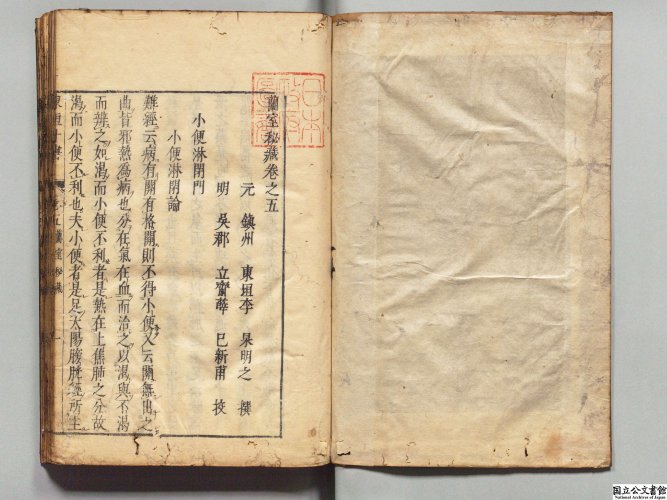 蘭室秘藏卷之五
元 鎮州 東垣李 杲明之 撰
明 吳郡 立齋薛 已新甫 挍
小便淋閉門
小便淋閉論
難經云病有關有格關則不得小便又云關無出之
曲皆邪熱爲病也分在氣在血而治之以渴與不渴
而辨之如渴而小便不利者是熱在上焦肺之分故
渴而小便不利也夫小便者是足太陽膀胱經所主
東垣十書 卷五蘭室秘藏 一
日本
國立公文書館
National Archives of Japan